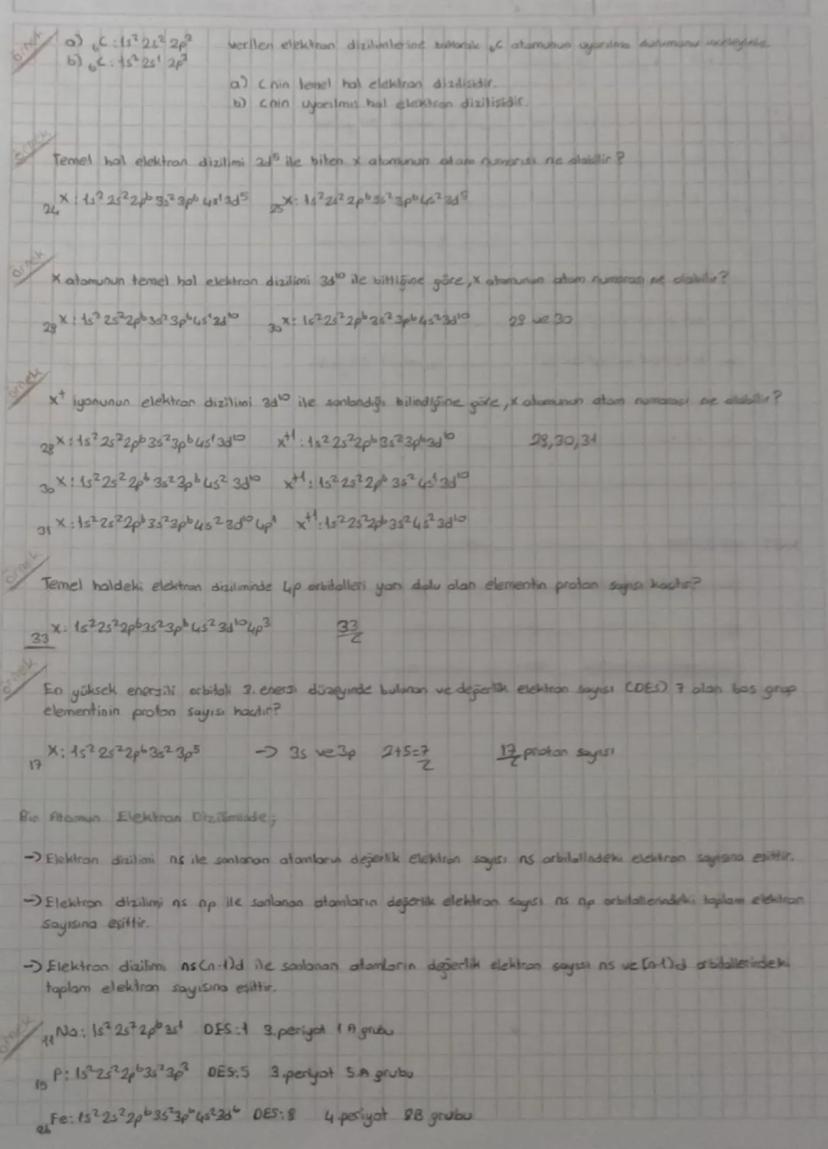 örnek a) ₆C: 1s² 2s² 2p² verilen elektron dizilimlerine ₆C atomunun uyarılma durumunu inceleyiniz.
b) ₆C: 1s² 2s¹ 2p³
a) C nin temel hal elektron dizilisidir.
b) C nin uyarılmış hal elektron dizilisidir.
örnek Temel hal elektron dizilimi 3d⁵ ile biten x atomunun atom numarası ne olabilir?
₂₄X: 1s² 2s² 2p⁶ 3s² 3p⁶ 4s¹ 3d⁵ ₂₅X: 1s² 2s² 2p⁶ 3s² 3p⁶ 4s² 3d⁵
örnek X atomunun temel hal elektron dizilimi 3d¹⁰ ile bittiğine göre, x atomunun atom numarası ne olabilir?
₂₉X: 1s² 2s² 2p⁶ 3s² 3p⁶ 4s¹ 3d¹⁰ ₃₀X: 1s² 2s² 2p⁶ 3s² 3p⁶ 4s² 3d¹⁰ 29 ve 30
örnek X⁺ iyonunun elektron dizilimi 3d¹⁰ ile sonlandığı bilindiğine göre, x atomunun atom numarası ne olabilir?
₂₉X: 1s² 2s² 2p⁶ 3s² 3p⁶ 4s¹ 3d¹⁰ X⁺¹: 1s² 2s² 2p⁶ 3s² 3p⁶ 3d¹⁰ 29,30,31
₃₀X: 1s² 2s² 2p⁶ 3s² 3p⁶ 4s² 3d¹⁰ X⁺¹: 1s² 2s² 2p⁶ 3s² 4s¹ 3d¹⁰
₃₁X: 1s² 2s² 2p⁶ 3s² 3p⁶ 4s² 3d¹⁰ 4p¹ X⁺¹: 1s² 2s² 2p⁶ 3s² 4s² 3d¹⁰
örnek Temel haldeki elektron diziliminde 4p orbitalleri yarı dolu olan elementin proton sayısı kaçtır?
₃₃X: 1s² 2s² 2p⁶ 3s² 3p⁶ 4s² 3d¹⁰ 4p³ 33
örnek En yüksek enerjili orbitali 3. enerji düzeyinde bulunan ve değerlik elektron sayısı (DES) 7 olan baş grup
elementinin proton sayısı kaçtır?
₁₇X: 1s² 2s² 2p⁶ 3s² 3p⁵ → 3s ve 3p 2+5=7 17 proton sayısı
Bir Atomun Elektron Diziliminde;
→ Elektron dizilimi ns ile sonlanan atomların değerlik elektron sayısı ns orbitalindeki elektron sayısına eşittir.
→ Elektron dizilimi ns np ile sonlanan atomların değerlik elektron sayısı ns np orbitallerindeki toplam elektron
sayısına eşittir.
→ Elektron dizilimi ns(n-1)d ile sonlanan atomların değerlik elektron sayısı ns ve (n-1)d orbitallerindeki
toplam elektron sayısına eşittir.
örnek ₁₁Na: 1s² 2s² 2p⁶ 3s¹ DES:1 3.periyot 1A grubu
₁₅P: 1s² 2s² 2p⁶ 3s² 3p³ DES:5 3.periyot 5A grubu
₂₆Fe: 1s² 2s² 2p⁶ 3s² 3p⁶ 4s² 3d⁶ DES:8 4.periyot 8B grubu